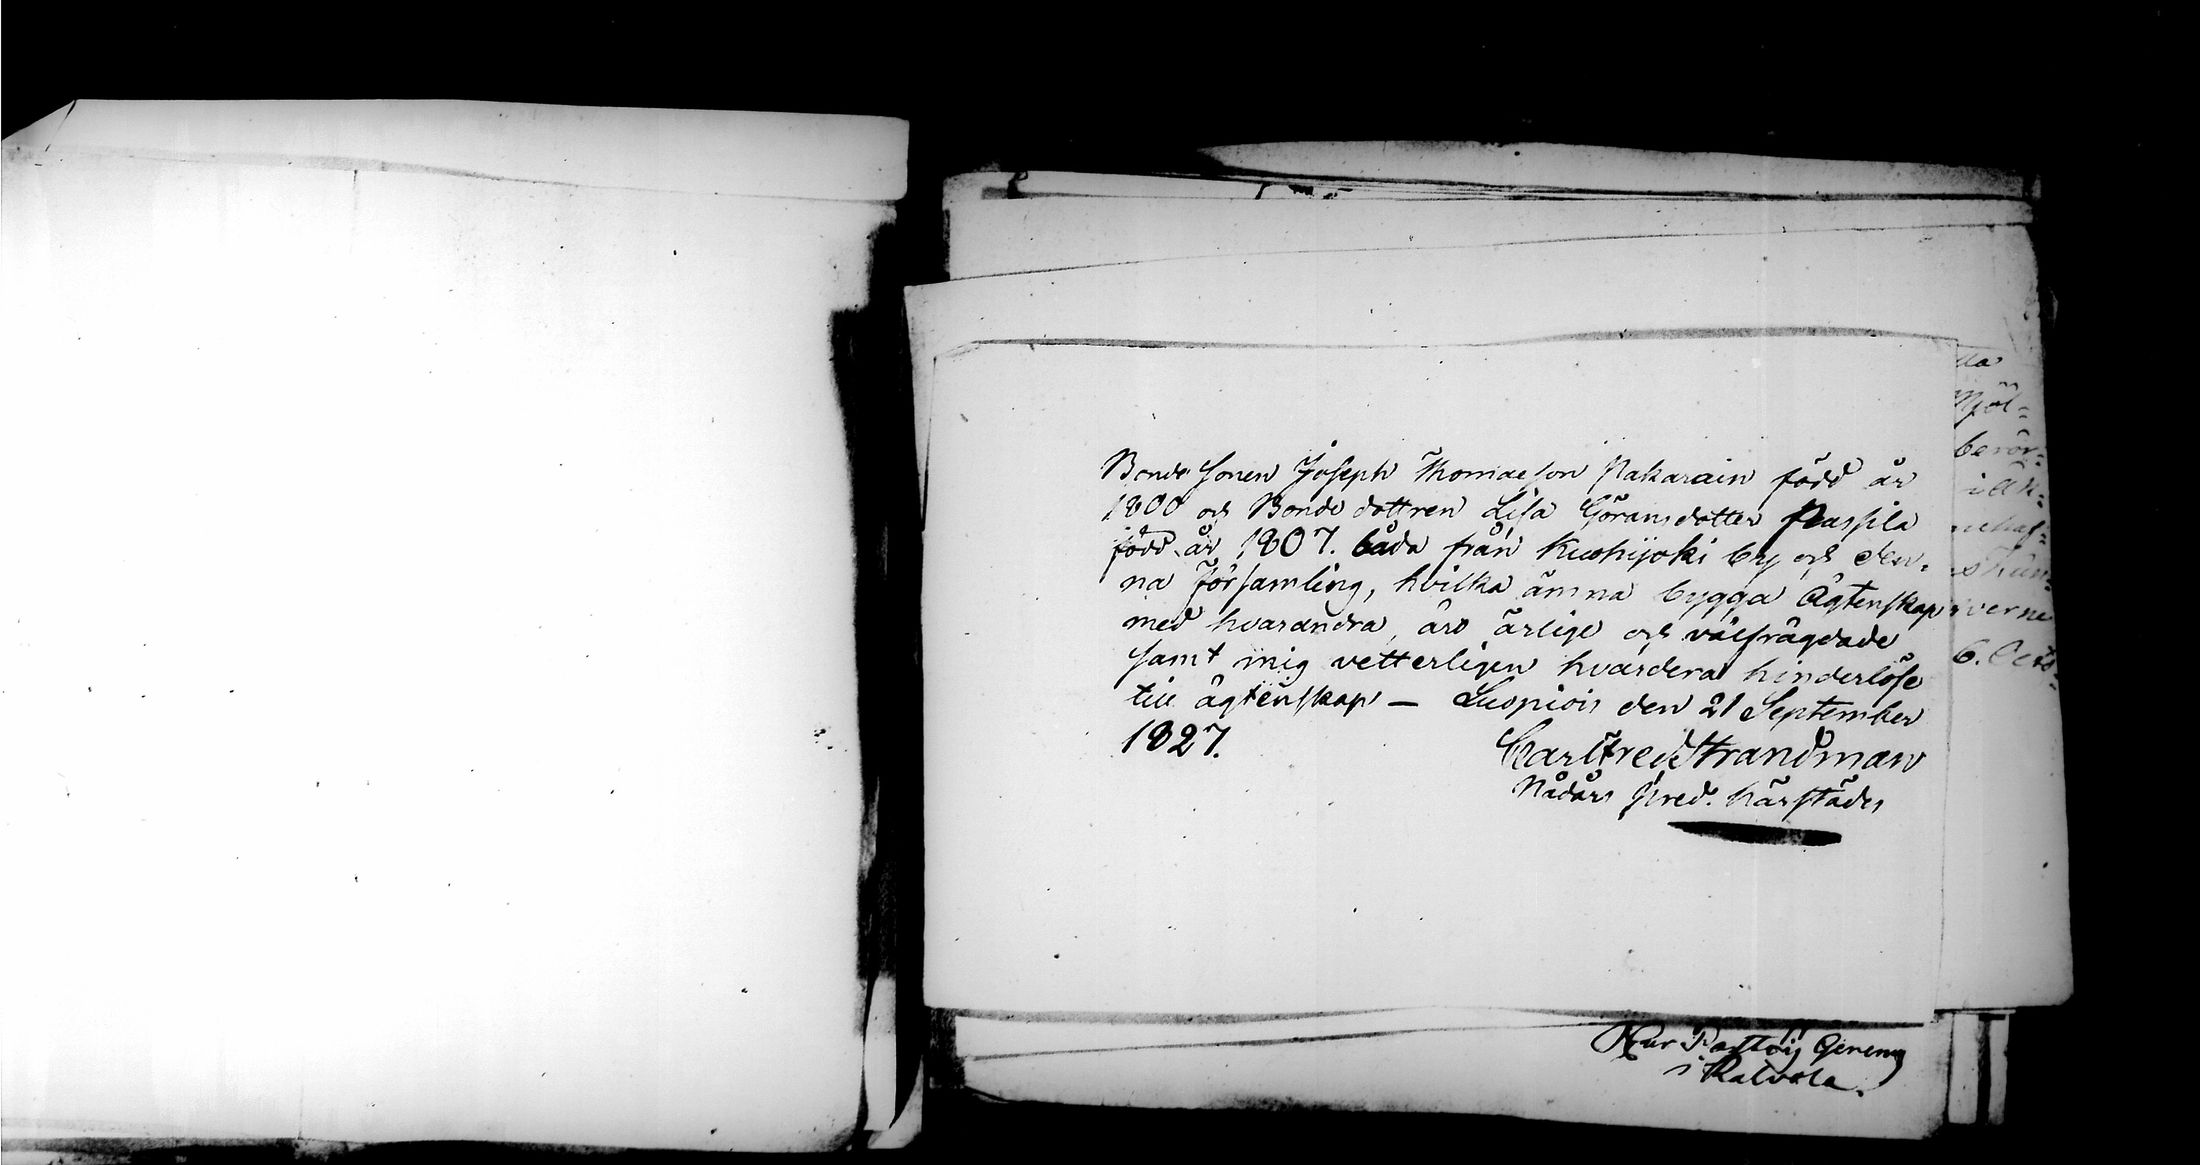 Bonde Sonen Joseph Thomasson Pakarain född år
1800 och Bonde dottren Lisa Göransdotter Passila
född år 1807. båda från Kuohijoki by och den-
na Församling, hvilka ämna bygga Ägtenskap
med hvarandra, äro ärlige och välfrägdade
samt mig vetterligen hvardera hinderlöse
till ägtenskap — Luopiois den 21 September
1827.
Carl Fred Strandman
Nådårs pred. härstädes
lla
Mjöl-
berör-
6. Oct
i Kalvola.